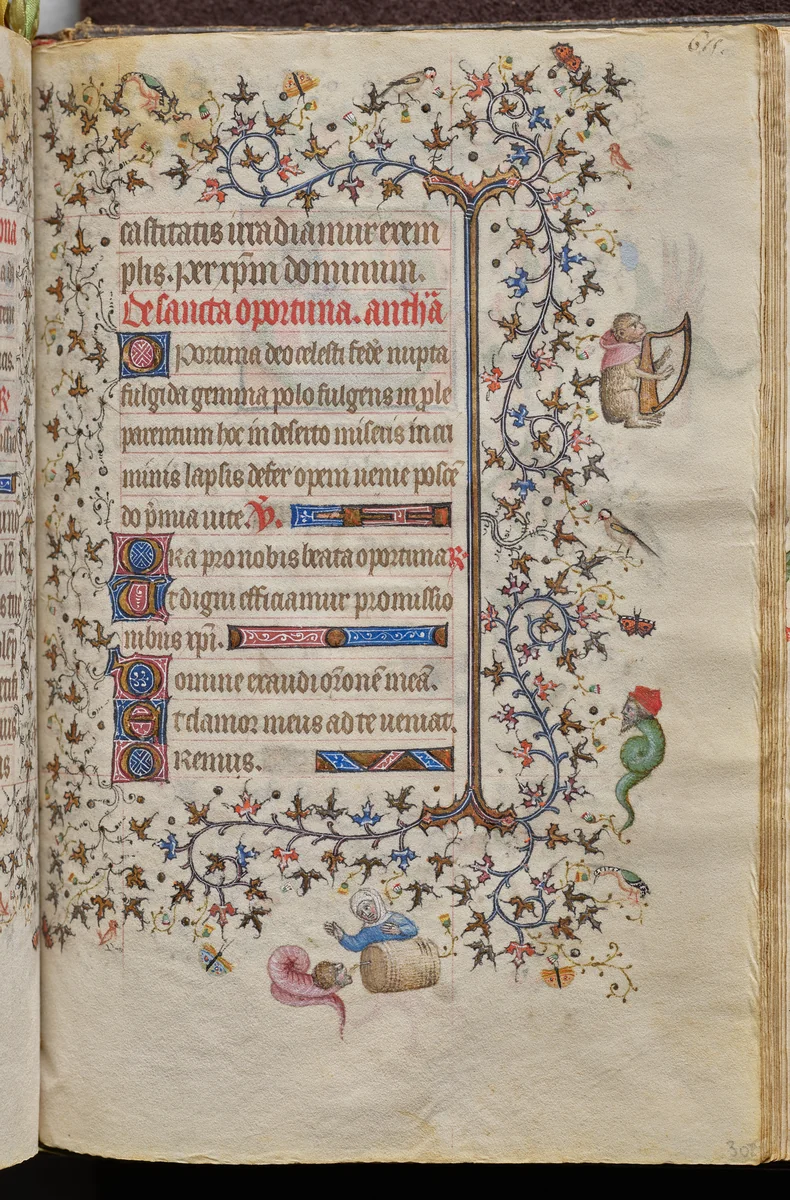 castitatis irradiamur exem
plis. Per xp̄m dominum.
De sancta oportuna. anth̄a
Oportuna deo celesti fede᷒ nupta
fulgida gemma polo fulgens in ple
parentum hoc in deserto miseris in cri
minis lapsis defer opem uenie poscē
do p̄mia uite. V̄.
Ora pro nobis beata oportuna R̄
Ut digni efficiamur promissio
nibus xp̄i.
Domine exaudi or̄onē meā.
Et clamor meus ad te ueniat.
Oremus.